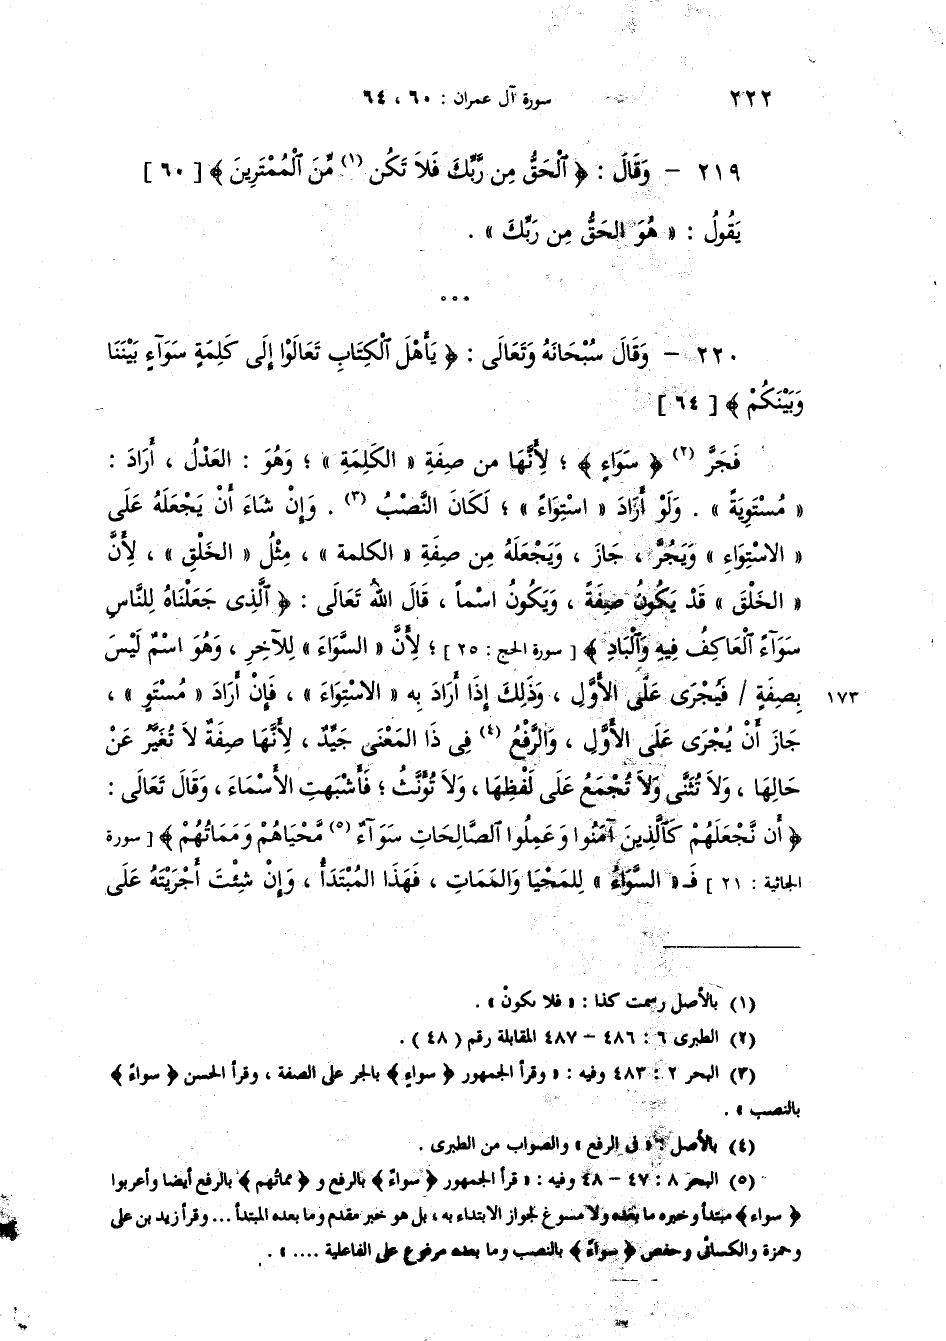 ٢٢٢ سورة آل عمران : ٦٠ ، ٦٤
٢١٩ – وَقَالَ : ﴿ ٱلْحَقُّ مِن رَّبِّكَ فَلاَ تَكُن (١) مِّنَ ٱلْمُمْتَرِينَ ﴾ [ ٦٠ ]
يَقُولُ : « هُوَ الحَقُّ مِن رَبِّكَ » .
٢٢٠ – وَقَالَ سُبْحَانَهُ وَتَعَالَى : ﴿ يَأَهْلَ ٱلْكِتَابِ تَعَالَوْا إِلَى كَلِمَةٍ سَوَآءٍ بَيْنَنَا
وَبَيْنَكُمْ ﴾ [ ٦٤ ]
فَجَرَّ (٢) ﴿ سَوَاءٍ ﴾ ؛ لِأَنَّهَا من صِفَةِ « الكَلِمَةِ » ؛ وَهُوَ : العَدْلُ ، أَرَادَ :
« مُسْتَوِيَةً » . وَلَوْ أَرَادَ « اسْتِوَاءً » ؛ لَكَانَ النَّصْبُ (٣) . وَإِنْ شَاءَ أَنْ يَجْعَلَهُ عَلَى
« الاسْتِوَاءِ » وَيَجُرَّ ، جَازَ ، وَيَجْعَلَهُ مِن صِفَةِ « الكلمة » ، مِثْلُ « الخَلْقِ » ، لِأَنَّ
« الخَلْقَ » قَدْ يَكُونُ صِفَةً ، وَيَكُونُ اسْماً ، قَالَ اللهُ تَعَالَى : ﴿ ٱلَّذِى جَعَلْنَاهُ لِلنَّاسِ
سَوَآءً ٱلْعَاكِفُ فِيهِ وَٱلْبَادِ ﴾ [ سورة الحج : ٢٥ ] ؛ لِأَنَّ « السَّوَاءَ » لِلآخِرِ ، وَهُوَ اسْمٌ لَيْسَ
١٧٣ بِصِفَةٍ / فَيُجْرَى عَلَى الأَوَّلِ ، وَذَلِكَ إِذَا أَرَادَ بِه « الاسْتِوَاءَ » ، فَإِنْ أَرَادَ « مُسْتَوٍ » ،
جَازَ أَنْ يُجْرَى عَلَى الأَوَّلِ ، وَالرَّفْعُ (٤) فِى ذَا المَعْنَى جَيِّدٌ ، لِأَنَّهَا صِفَةٌ لاَ تُغَيَّرُ عَنْ
حَالِهَا ، وَلاَ تُثَنَّى وَلاَ تُجْمَعُ عَلَى لَفْظِهَا ، وَلاَ تُؤَنَّثُ ؛ فَأَشْبَهتِ الأَسْمَاءَ ، وَقَالَ تَعَالَى :
﴿ أَن نَّجْعَلَهُمْ كَٱلَّذِينَ آمَنُوا وَعَمِلُوا ٱلصَّالِحَاتِ سَوَآءٌ (٥) مَّحْيَاهُمْ وَمَمَاتُهُمْ ﴾ [ سورة
الجاثية : ٢١ ] فَـ « السَّوَاءُ » لِلمَحْيَا وَالمَمَاتِ ، فَهَذَا المُبْتَدَأُ ، وَإِنْ شِئْتَ أَجْرَيْتَهُ عَلَى
(١) بالأصل رسمت كذا : « فلا ىكونْ » .
(٢) الطبرى ٦ : ٤٨٦ – ٤٨٧ المقابلة رقم ( ٤٨ ) .
(٣) البحر ٢ : ٤٨٣ وفيه : « وقرأ الجمهور ﴿ سواءٍ ﴾ بالجر على الصفة ، وقرأ الحسن ﴿ سواءً ﴾
بالنصب » .
(٤) بالأصل : « فى الرفع » والصواب من الطبرى .
(٥) البحر ٨ : ٤٧ – ٤٨ وفيه : « قرأ الجمهور ﴿ سواءٌ ﴾ بالرفع و ﴿ مماتُهم ﴾ بالرفع أيضا وأعربوا
﴿ سواء ﴾ مبتدأ وخبره ما بعده ولا مسوغ لجواز الابتداء به ، بل هو خبر مقدم وما بعده المبتدأ ... وقرأ زيد بن على
وحمزة والكسائى وحفص ﴿ سواءً ﴾ بالنصب وما بعده مرفوع على الفاعلية .... » .